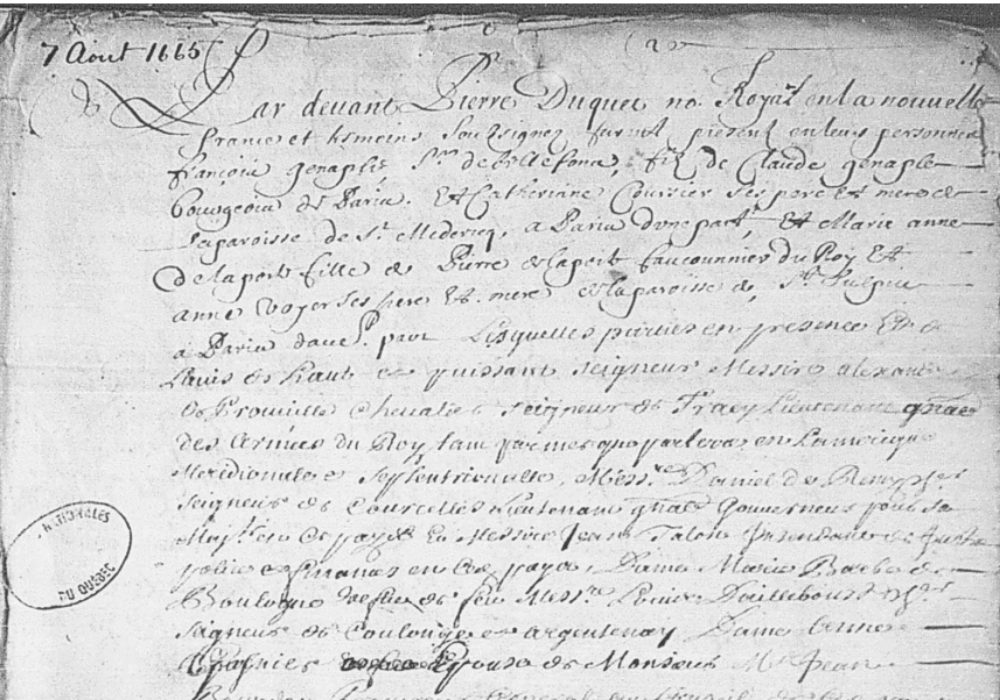 7 Aout 1665
Par devant Pierre Duquet no. Royal en la nouvelle
france et tesmoins soubsignez furent present en leurs personnes
françois genaple, Sr de Bellefond, filz de Claude genaple
bourgeois de Paris. Et Catherinne Coursier ses pere et mere de
la paroisse de St. Medericq, a Paris d'une part, Et Marie anne
de la porte fille de Pierre de la porte fauconnier du Roy Et
anne voyer ses pere Et mere de la paroisse de St Sulpice
a Paris d'aue. part Lesquelles parties en presence Et de
Lauis de hault et puissant seigneur Messire alexandre
de Prouville Chevalier seigneur de Tracy Lieutenant gnal
des armées du Roy tant par mer que par terre en Lamerique
Meridionale et septentrionalle, Messre Daniel de Remy
seigneur de Courcelles Lieutenant gnal Gouverneur pour sa
Majté en ce pays Et Messire Jean Talon Intendant de Justice
police et finances en ce pays, Dame Marie Barbe de
Boulogne de feu Messre Louis Dailleboust
seigneur de Coulonge et argentenay Dame anne
Espouse de Monsieur Jean
General au Conseil de
NATIONALES
DU QUÉBEC